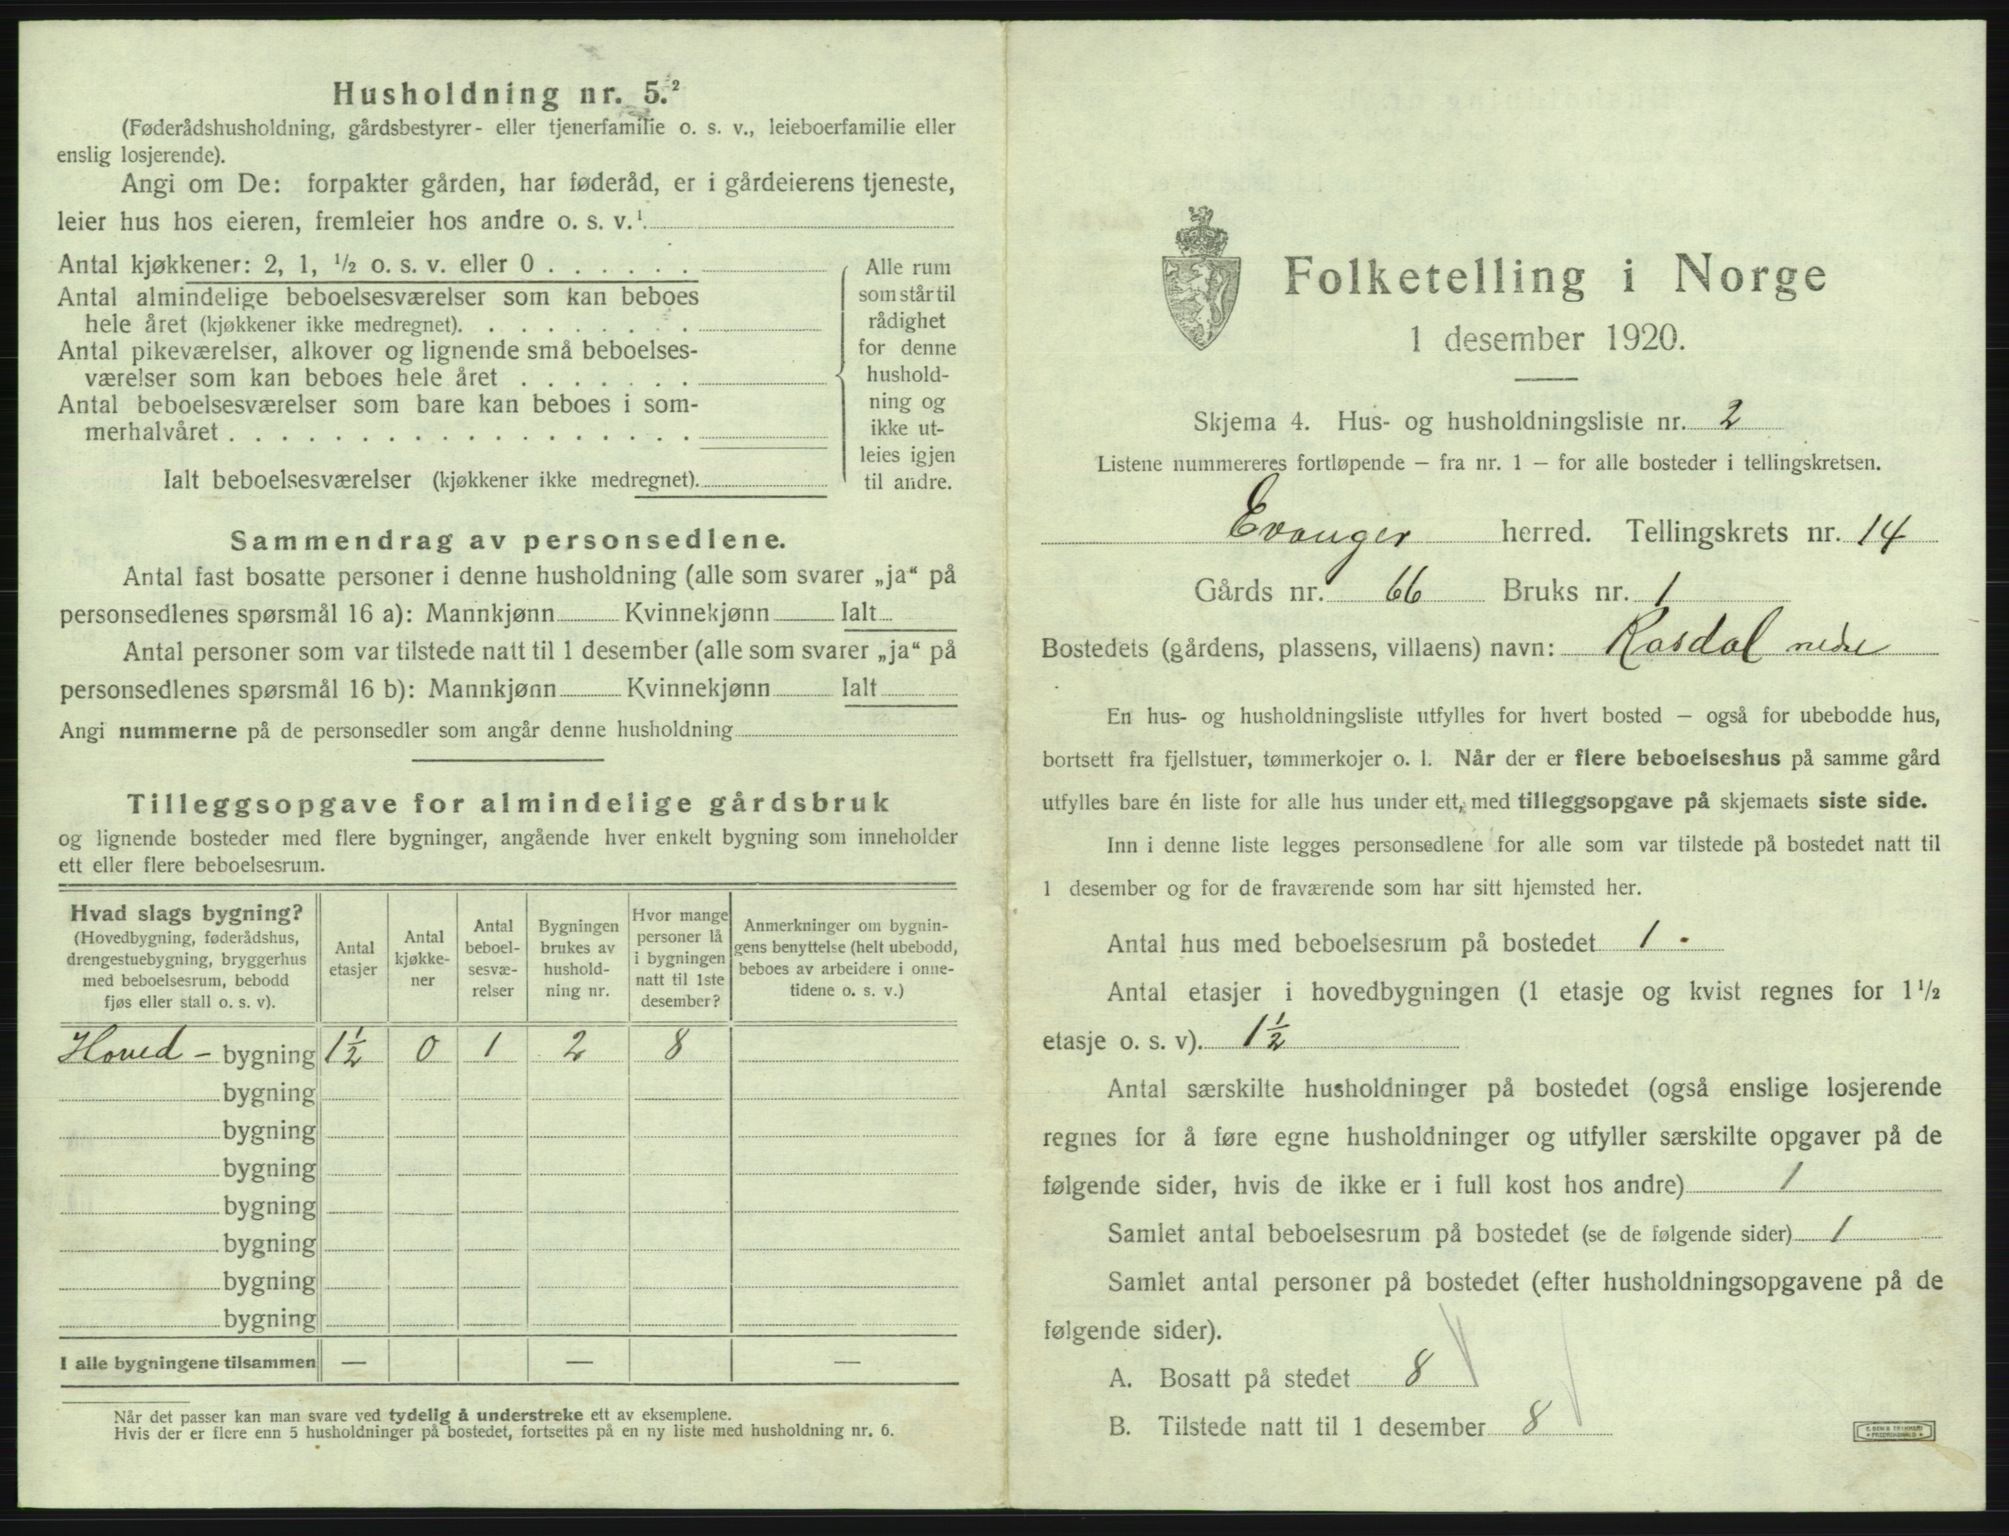 Husholdning nr. 5.²
(Føderådshusholdning, gårdsbestyrer- eller tjenerfamilie o. s. v., leieboerfamilie eller
enslig losjerende).
Angi om De: forpakter gården, har føderåd, er i gårdeierens tjeneste,
leier hus hos eieren, fremleier hos andre o. s. v.¹
Antal kjøkkener: 2, 1, ½ o. s. v. eller 0
Antal almindelige beboelsesværelser som kan beboes
hele året (kjøkkener ikke medregnet).
Antal pikeværelser, alkover og lignende små beboelses-
værelser som kan beboes hele året
Antal beboelsesværelser som bare kan beboes i som-
merhalvåret
Ialt beboelsesværelser (kjøkkener ikke medregnet).
Alle rum
som står til
rådighet
for denne
hushold-
ning og
ikke ut-
leies igjen
til andre.
Sammendrag av personsedlene.
Antal fast bosatte personer i denne husholdning (alle som svarer „ja“ på
personsedlenes spørsmål 16 a): Mannkjønn Kvinnekjønn Ialt
Antal personer som var tilstede natt til 1 desember (alle som svarer „ja“ på
personsedlenes spørsmål 16 b): Mannkjønn Kvinnekjønn Ialt
Angi nummerne på de personsedler som angår denne husholdning
Tilleggsopgave for almindelige gårdsbruk
og lignende bosteder med flere bygninger, angående hver enkelt bygning som inneholder
ett eller flere beboelsesrum.
Hvad slags bygning?
(Hovedbygning, føderådshus,
drengestuebygning, bryggerhus
med beboelsesrum, bebodd
fjøs eller stall o. s. v).
Antal
etasjer
Antal
kjøkke-
ner
Antal
beboel-
sesvæ-
relser
Bygningen
brukes av
hushold-
ning nr.
Hvor mange
personer lå
i bygningen
natt til 1ste
desember?
Anmerkninger om bygnin-
gens benyttelse (helt ubebodd,
beboes av arbeidere i onne-
tidene o. s. v.)
Hoved - bygning 1½ 0 1 2 8
bygning
bygning
bygning
bygning
bygning
bygning
bygning
I alle bygningene tilsammen — — —
Når det passer kan man svare ved tydelig å understreke ett av eksemplene.
Hvis der er flere enn 5 husholdninger på bostedet, fortsettes på en ny liste med husholdning nr. 6.
Folketelling i Norge
1 desember 1920.
Skjema 4. Hus- og husholdningsliste nr. 2
Listene nummereres fortløpende — fra nr. 1 — for alle bosteder i tellingskretsen.
Evanger herred. Tellingskrets nr. 14
Gårds nr. 66 Bruks nr. 1
Bostedets (gårdens, plassens, villaens) navn: Rasdal nedre
En hus- og husholdningsliste utfylles for hvert bosted — også for ubebodde hus,
bortsett fra fjellstuer, tømmerkojer o. l. Når der er flere beboelseshus på samme gård
utfylles bare én liste for alle hus under ett, med tilleggsopgave på skjemaets siste side.
Inn i denne liste legges personsedlene for alle som var tilstede på bostedet natt til
1 desember og for de fraværende som har sitt hjemsted her.
Antal hus med beboelsesrum på bostedet 1 .
Antal etasjer i hovedbygningen (1 etasje og kvist regnes for 1½
etasje o. s. v). 1½
Antal særskilte husholdninger på bostedet (også enslige losjerende
regnes for å føre egne husholdninger og utfyller særskilte opgaver på de
følgende sider, hvis de ikke er i full kost hos andre) 1
Samlet antal beboelsesrum på bostedet (se de følgende sider) 1
Samlet antal personer på bostedet (efter husholdningsopgavene på de
følgende sider).
A. Bosatt på stedet 8
B. Tilstede natt til 1 desember 8